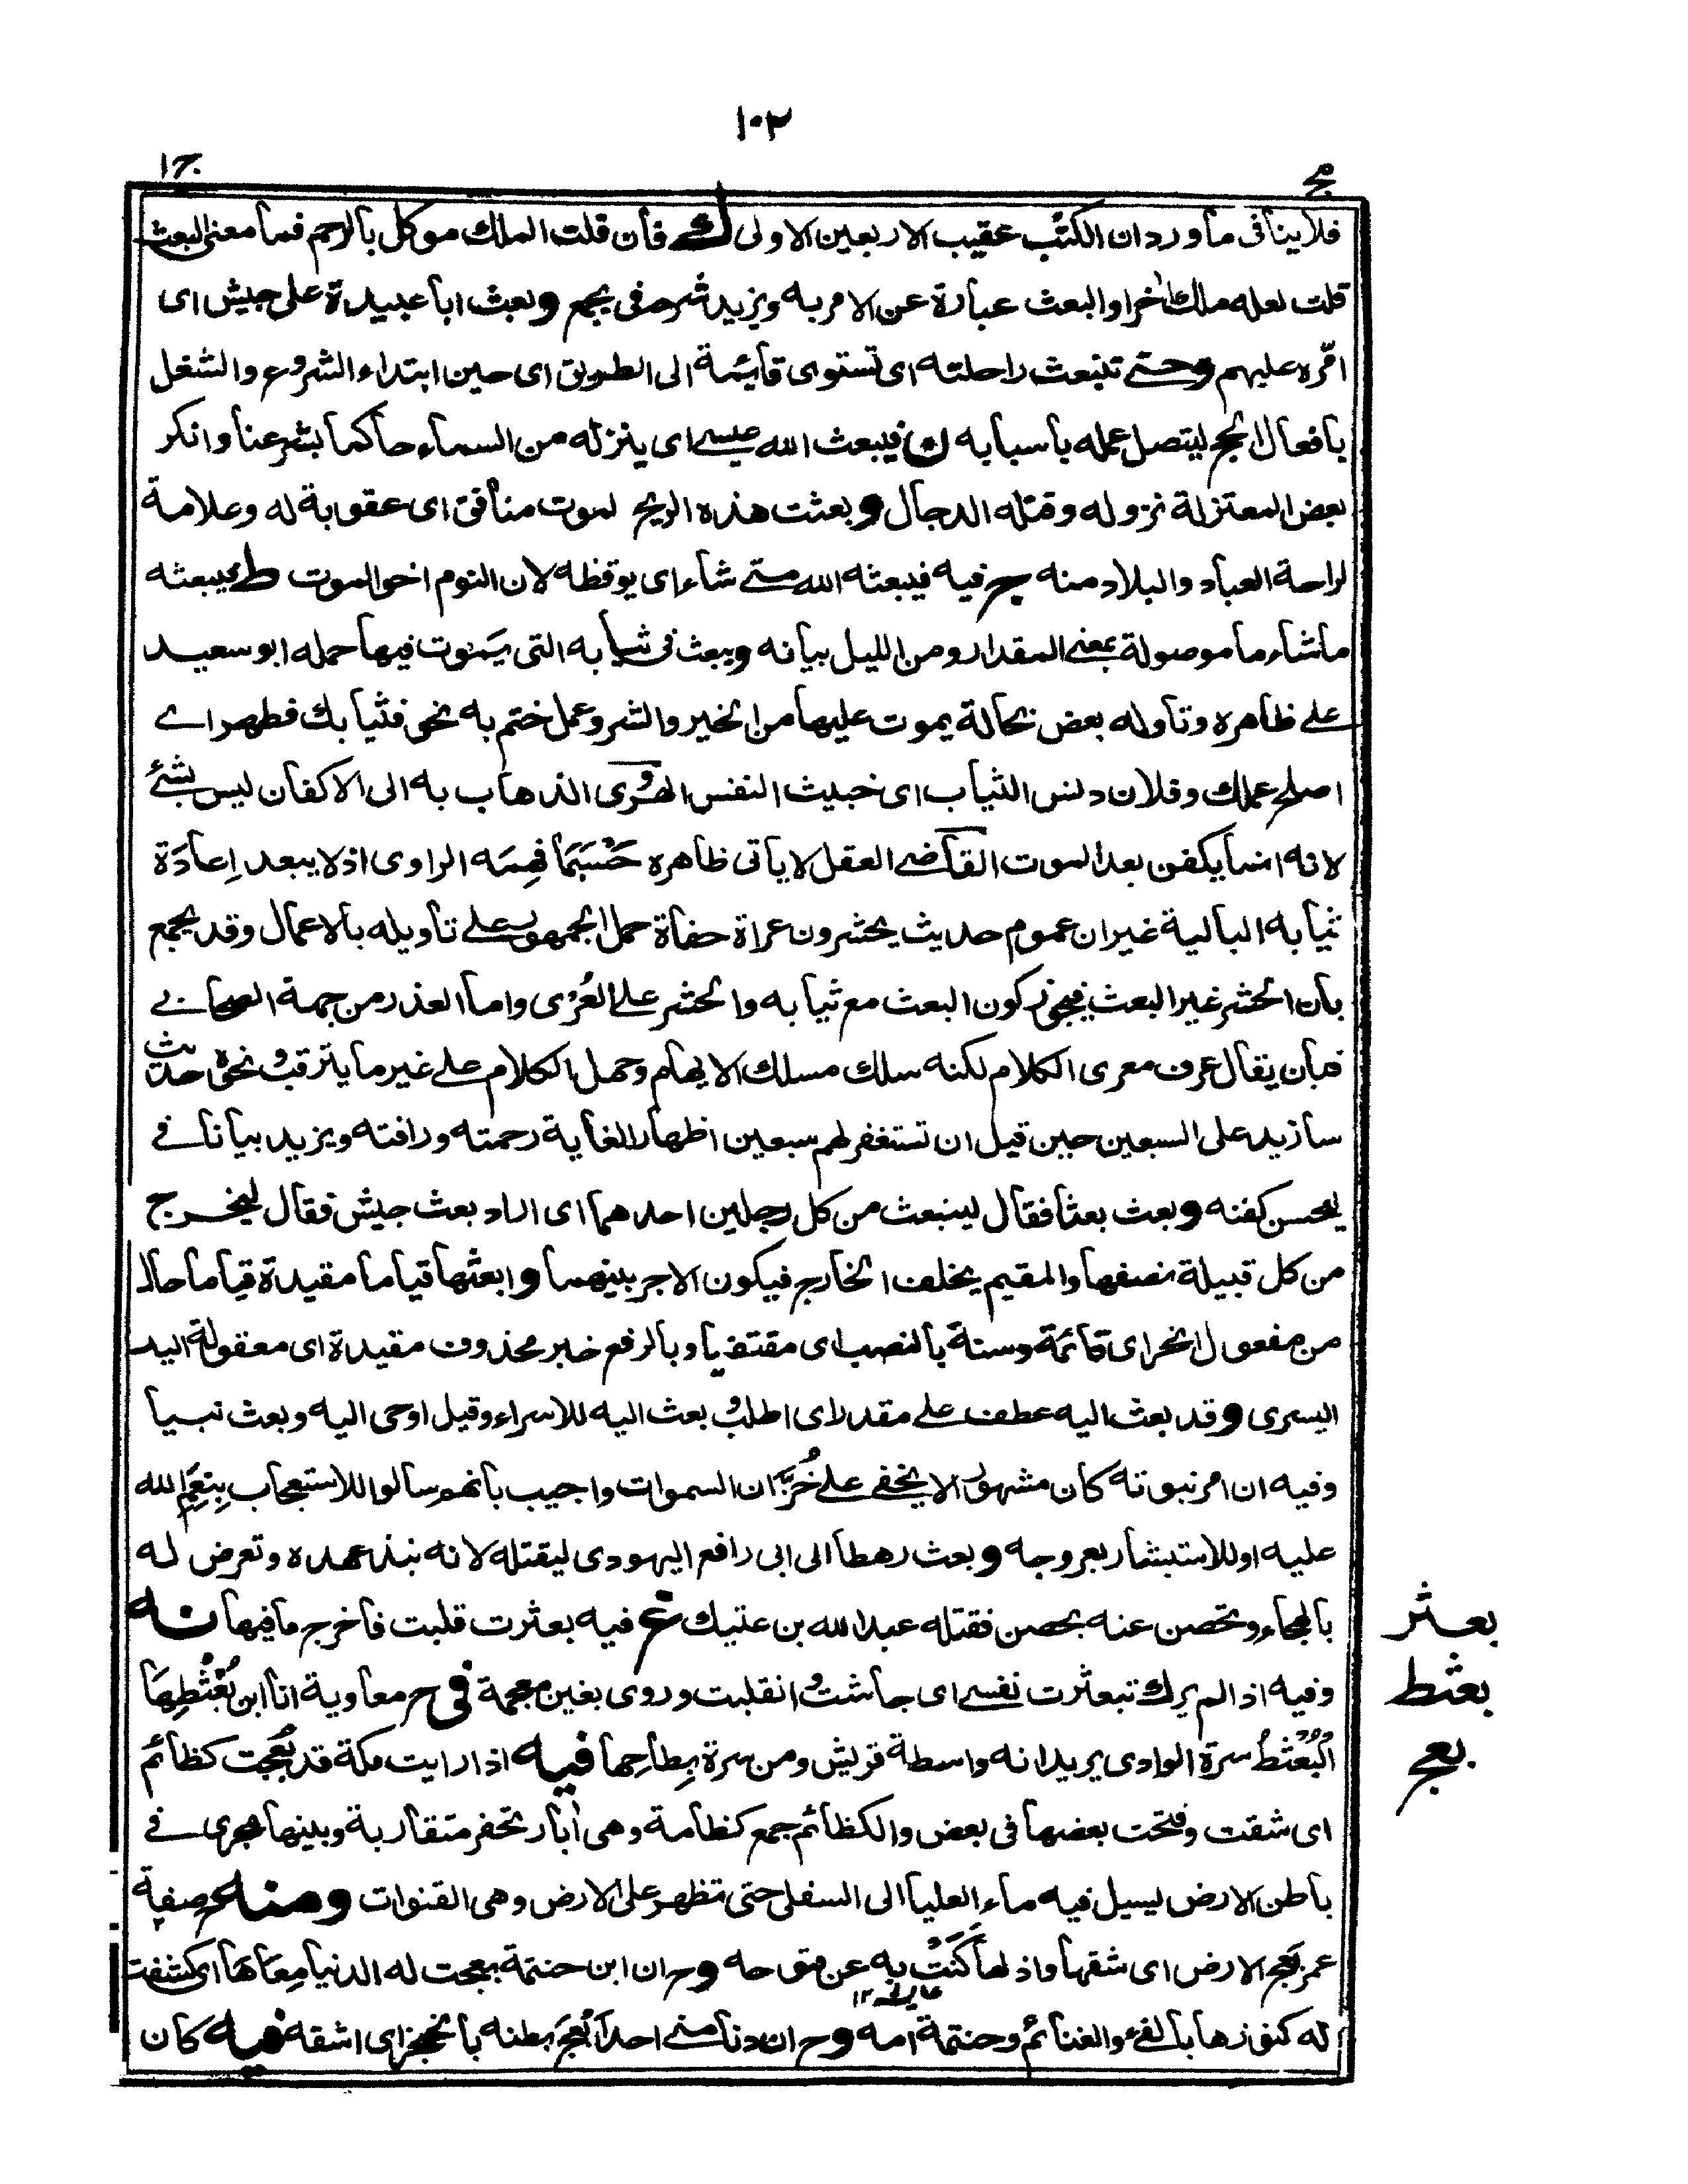 ١٠٢
مج
ج ١
فلا ينافى ما ورد ان الكتب عقيب الاربعين الاولى ك فان قلت الملك موكل بالرحم فما معنى البعث
قلت لعله ملك اخر او البعث عبارة عن الامر به ويزيد شرحه فى يجمع وبعث ابا عبيدة على جيش اى
امّره عليهم وحتى تنبعث راحلته اى تستوى قائمة الى الطريق اى حين ابتداء الشروع والشغل
بافعال الحج ليتصل عمله باسبابه ن فيبعث الله عيسى اى ينزله من السماء حاكما بشرعنا وانكر
بعض المعتزلة نزوله وقتله الدجال وبعثت هذه الريح لموت منافق اى عقوبة له وعلامة
لراحة العباد والبلاد منه ج فيه فيبعثه الله متى شاء اى يوقظه لان النوم اخو الموت ط يبعثه
ما شاء ما موصولة بمعنى المقدار ومن الليل بيانه ويبعث فى ثيابه التى يَمُوت فيها حمله ابو سعيد
على ظاهره وتاوله بعض بحالة يموت عليها من الخير والشر وعمل ختم به نحو فثيابك فطهر اے
اصلح عملك وفلان دنس الثياب اى خبيث النفس الهروى الذهاب به الى الاكفان ليس بشئ
لانه انما يكفن بعد الموت القاضى العقل لا يأتى ظاهره حَسْبَمَا فهِمَه الراوى اذ لا يبعد إعادَة
ثيابه البالية غير ان عموم حديث يحشرون عراة حفاة حمل الجمهور على تأويله بالاعمال وقد يجمع
بان الحشر غير البعث فيجوز كون البعث مع ثيابه والحشر على العُرْى واما العذر من جهة الصحابى
فبان يقال عرف معرى الكلام لكنه سلك مسلك الايهام وحمل الكلام على غير ما يترقب ونحوه حديث
سازيد على السبعين حين قيل ان تستغفر لهم سبعين اظهارا لغاية رحمته ورافته ويزيد بيانا فى
ليحسن كفنه وبعث بعثا فقال لينبعث من كل رجلين احدهما اى اراد بعث جيش فقال ليخرج
من كل قبيلة نصفها والمقيم يخلف الخارج فيكون الاجر بينهما وابعثها قياما مقيدة قياما حال
من مفعول انحر اى قائمة وسنة بالنصب اى مقتفيا وبالرفع خبر محذوف مقيدة اى معقولة اليد
اليسرى وقد بعث اليه عطف على مقدر اى اطلب وبعث اليه للاسراء وقيل اوحى اليه وبعث نبيا
وفيه ان امر نبوته كان مشهورا لا يخفى على خُزّان السموات واجيب بانهم سالوا للاستعجاب بِنِعَمِ الله
عليه او للاستبشار بعروجه وبعث رهطا الى ابى رافع اليهودى ليقتله لانه نبذ عهده وتعرض له
بالهجاء وتحصن عنه بحصن فقتله عبد الله بن عتيك غ فيه بعثرت قلبت فاخرج ما فيها نه
وفيه اذا لم يرك تبعثرت نفسى اى جاشت وانقلبت وروى بغين معجمة فى ح معاوية انا ابن بُعْثُطِهَا
الْبُعْثُطُ سرة الوادى يريد انه واسطة قريش ومن سرة بِطاحها فيه اذا رايت مكة قد بُعِجت كظائم
اى شقت وفتحت بعضها فى بعض والكظائم جمع كظامة وهى آبار تحفر متقاربة وبينها مجرى فى
باطن الارض ليسيل فيه ماء العليا الى السفلى حتى تظهر على الارض وهى القنوات ومنه ح صفة
عمر بَعَج الارض اى شقها واذلها كَنَتْ به عن فتوحه وح ان ابن حنتمة بعجت له الدنيا مِعَاهَا اى كشفت
عايشة ١٢
له كنوزها بالفئ والغنائم وحنتمة امه وح ان دنا منى احد اَبْعَج بطنه بالخنجر اى اشقه فيه كان
بعثر
بعثط
بعج